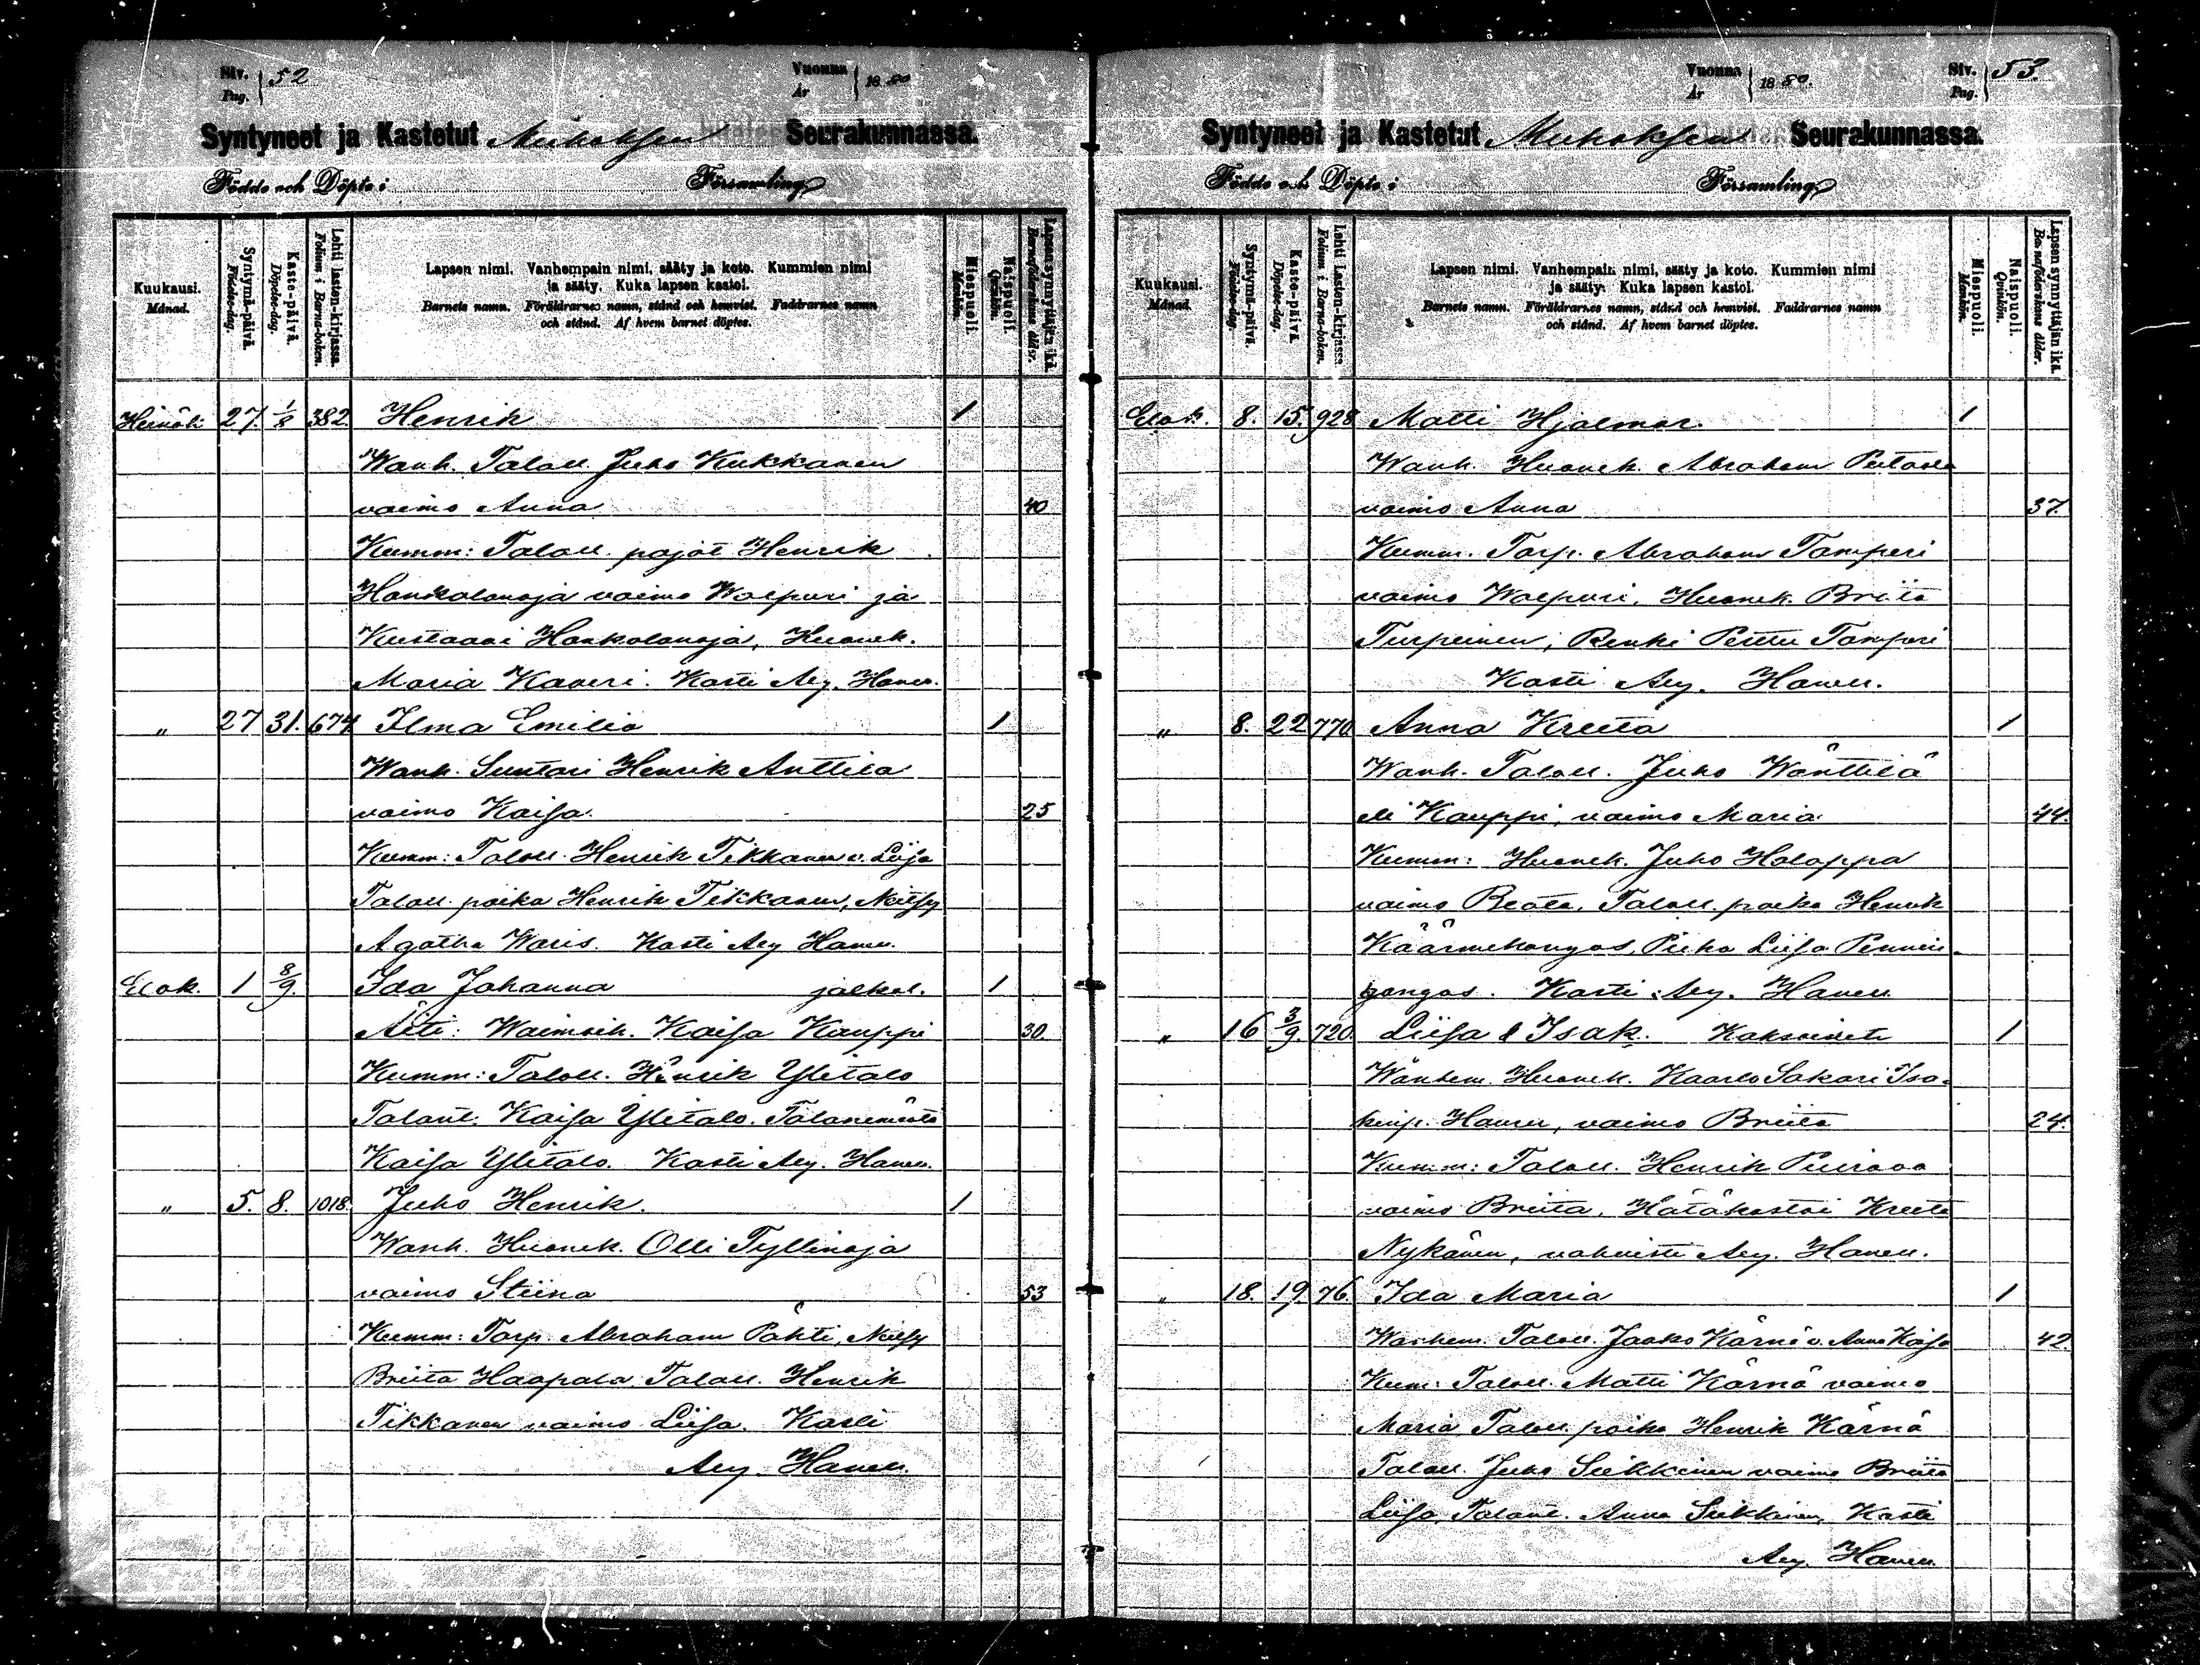 Siv. 52
Pag.
Vuonna 1880
År
Syntyneet ja Kastetut Muhoksen Seurakunnassa.
Födde och Döpte i Församling
Kuukausi. Månad.
Syntymä-päivä. Födelse-dag.
Kaste-päivä. Döpelse-dag.
Lehti lasten-kirjassa. Folium i Barna-boken.
Lapsen nimi. Vanhempain nimi, sääty ja koto. Kummien nimi
ja sääty. Kuka lapsen kastoi.
Barnets namn. Föräldrarnes namn, stånd och hemvist. Faddrarnes namn
och stånd. Af hvem barnet döptes.
Miespuoli. Mankön.
Naispuoli. Qvinkön.
Lapsensynnyttäjän ikä. Barnaföderskans ålder.
Heinäk 27. 1/8 382. Henrik 1
Wanh. Taloll. Juho Kukkanen
vaimo Anna 40
Kumm: Taloll. pojat Henrik
Hankalanoja vaimo Walpuri ja
Kustaavi Hankalanoja, Huonek.
Maria Kaveri. Kasti Arm. Haven.
" 27 31. 674 Ilma Emilia 1
Wanh. Suntari Henrik Anttila
vaimo Kaisa. 25
Kumm: Taloll. Henrik Tikkanen v. Liisa
Taloll. poika Henrik Tikkanen, Neitsy
Agatha Waris. Kasti Arm Haven.
Elok. 1 8/9. Ida Johanna jalkal. 1
Äiti: Waimoih. Kaisa Kauppi 30.
Kumm: Taloll. Henrik Ylitalo
Talont. Kaisa Ylitalo. Talonemäntä
Kaisa Ylitalo. Kasti Arm. Haven.
" 5. 8. 1018. Juho Henrik. 1
Wanh. Huonek. Olli Tyllinoja
vaimo Stiina 53
Kumm: Torp. Abraham Pahti, Neitsy
Briita Haapala. Taloll. Henrik
Tikkanen vaimo Liisa. Kasti
Arm. Haven.
Vuonna 1880.
År
Siv. 53.
Pag.
Syntyneet ja Kastetut Muhoksen Seurakunnassa.
Födde och Döpte i Församling
Kuukausi. Månad.
Syntymä-päivä. Födelse-dag.
Kaste-päivä. Döpelse-dag.
Lehti lasten-kirjassa. Folium i Barna-boken.
Lapsen nimi. Vanhempain nimi, sääty ja koto. Kummien nimi
ja sääty. Kuka lapsen kastoi.
Barnets namn. Föräldrarnes namn, stånd och hemvist. Faddrarnes namn
och stånd. Af hvem barnet döptes.
Miespuoli. Mankön.
Naispuoli. Qvinkön.
Lapsen synnyttäjän ikä. Barnaföderskans ålder.
Elok. 8. 15. 928 Matti Hjalmar. 1
Wanh. Huonek. Abraham
vaimo Anna 37
Kumm. Torp. Abraham Tamperi
vaimo Walpuri. Huonek. Briita
Turpeinen, Renki Perttu Tamperi
Kasti Arm. Haven.
" 8. 22 770 Anna Kreeta 1
Wanh. Taloll. Juho Wänttilä
eli Kauppi, vaimo Maria 44.
Kumm: Huonek. Juho Holappa
vaimo Beata, Taloll. poika Henrik
Käärmekangas, Piika Liisa Pennin-
gangas. Kasti Arm. Haven
" 16 3/9. 720. Liisa & Isak. Kaksoiset 1
Wanhem. Huonek. Kaarlo Sakari Isa-
kinp. Haven, vaimo Briita 24.
Kumm: Taloll. Henrik
vaimo Briita. Hätäkastoi Kreeta
Nykänen, vahvisti Arm. Haven.
" 18. 19. 76. Ida Maria 1
Wanhem. Taloll. Jaako Kärnä v. Anna Kaisa 42.
Kum: Taloll. Matti Kärnä vaimo
Maria Taloll. poika Henrik Kärnä
Taloll. Juho Siekkinen vaimo Briita
Liisa. Talont. Anna Siekkinen, Kasti
Arm. Haven.